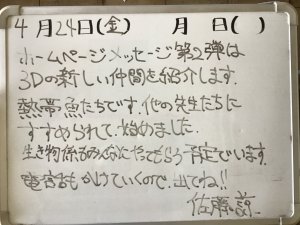 4月24日(金) 月 日( )
ホームページメッセージ第2弾は
3Dの新しい仲間を紹介します。
熱帯魚たちです。他の先生たちに
すすめられて、始めました。
生き物係もみんなにやってもらう予定でいます。
電話もかけていくので、出てね!!
佐藤 諒